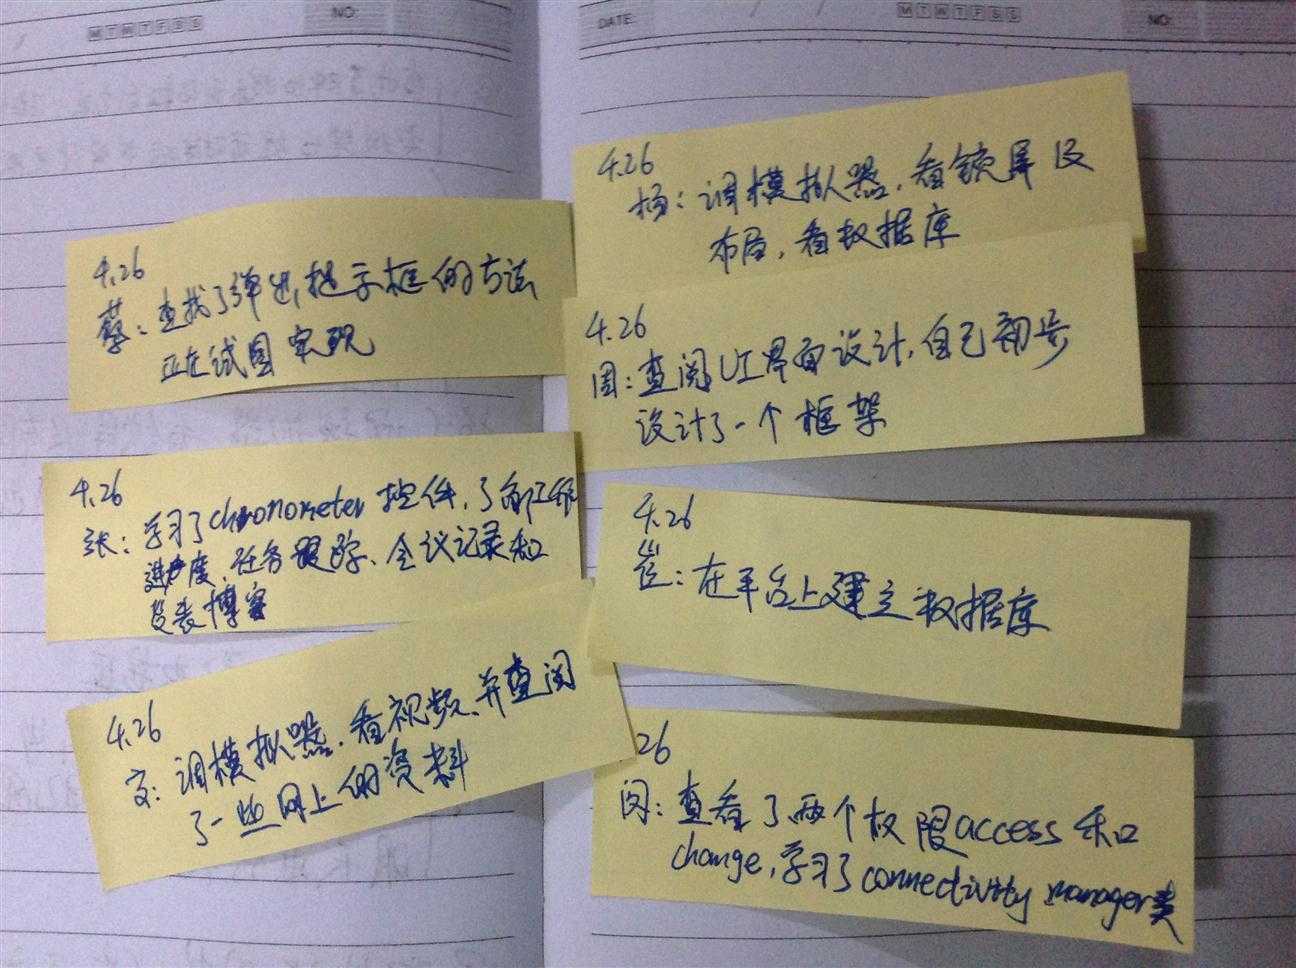 MTWTFSS
NO:
DATE:
MTWTFSS
NO:
4.26
蔡：查找了弹出提示框的方法
正在试图实现
4.26
张：学习了chronometer 控件，了解工作
进度、任务跟踪、会议记录和
发表博客
4.26
安：调模拟器，看视频，并查阅
了一些网上的资料
4.26
杨：调模拟器，看锁屏及
布局，看数据库
4.26
周：查阅UI界面设计，自己初步
设计了一个框架
4.26
崔：在平台上建立数据库
26
闵：查看了两个权限access和
change，学习了connectivity manager类